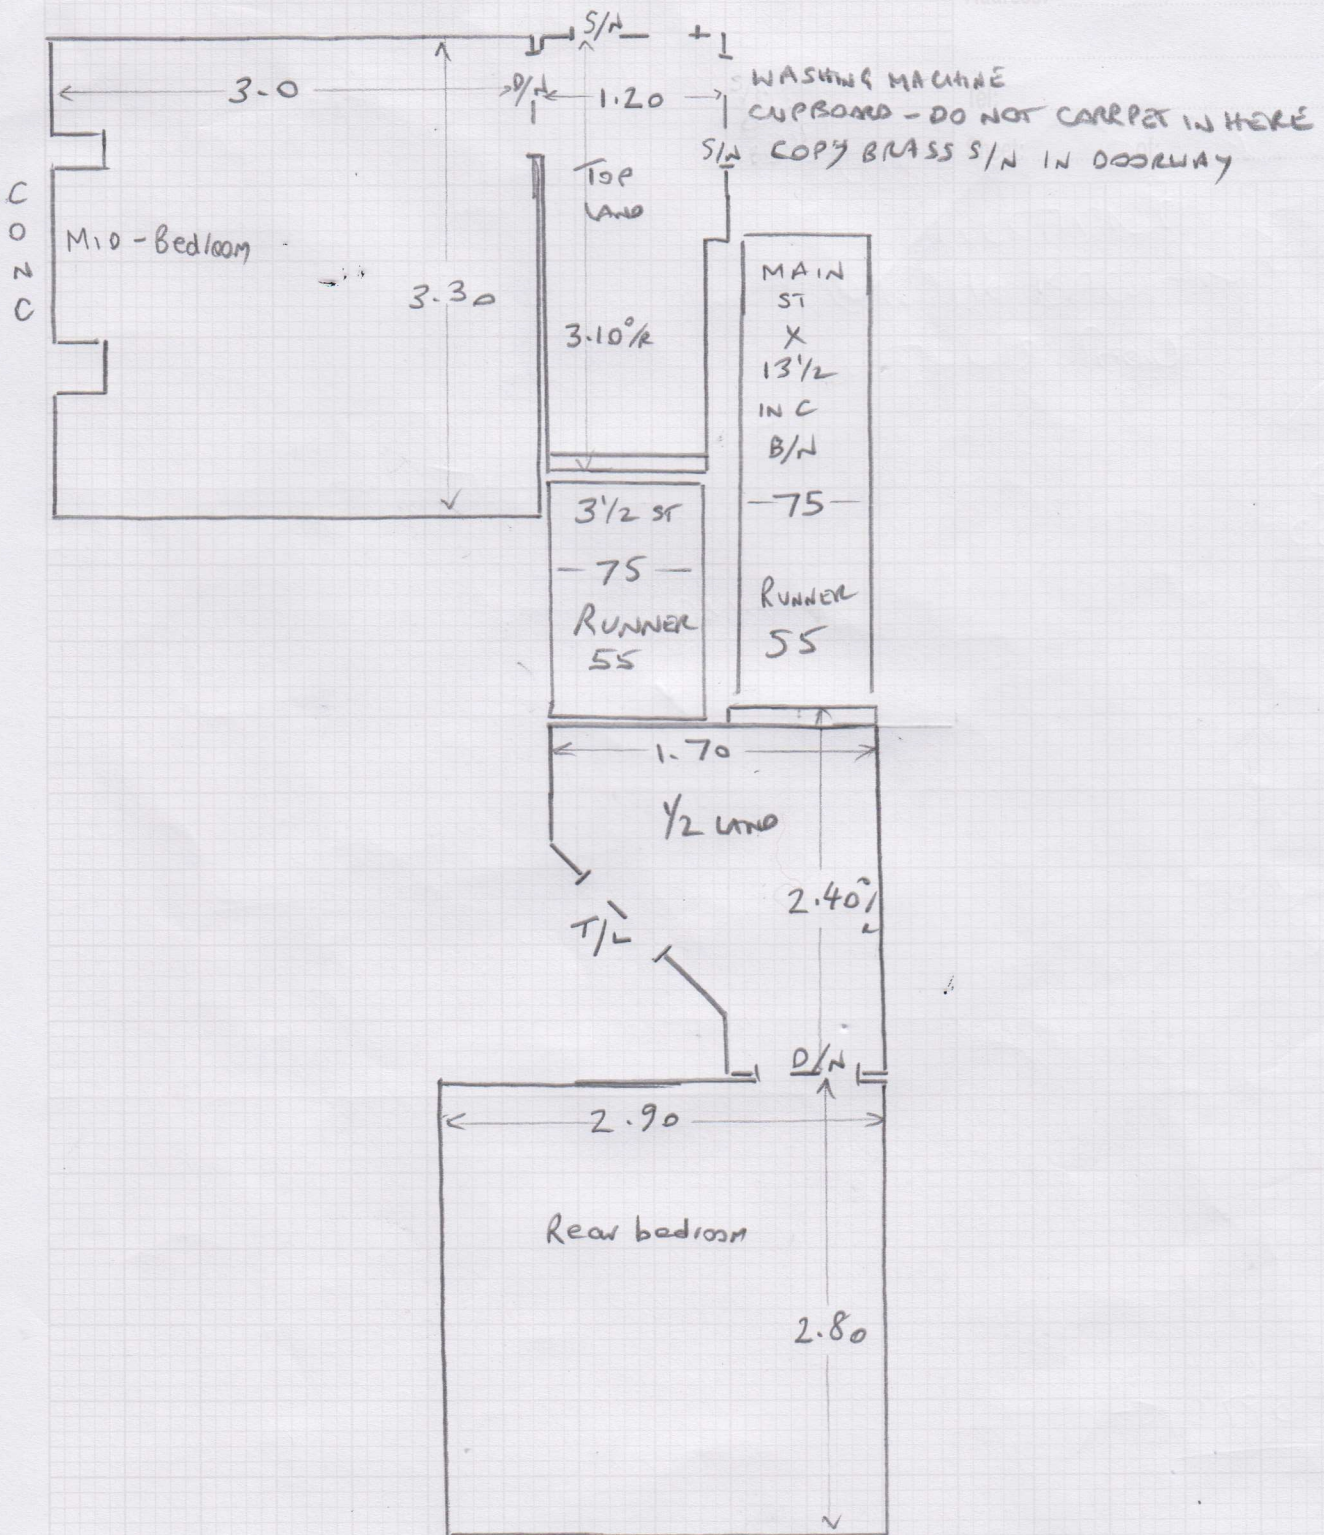 S/N
3.0
D/N
1.20
WASHING MACHINE
CUPBOARD - DO NOT CARRPET IN HERE
S/N COPY BRASS S/N IN DOORWAY
TOP
LAND
CONC
MID-Bedroom
3.30
3.10 O/R
MAIN
ST
X
13 1/2
INC
B/N
-75-
RUNNER
55
3 1/2 ST
-75-
RUNNER
55
1.70
1/2 LAND
2.40 O/R
T/L
D/N
2.90
Rear bedroom
2.80